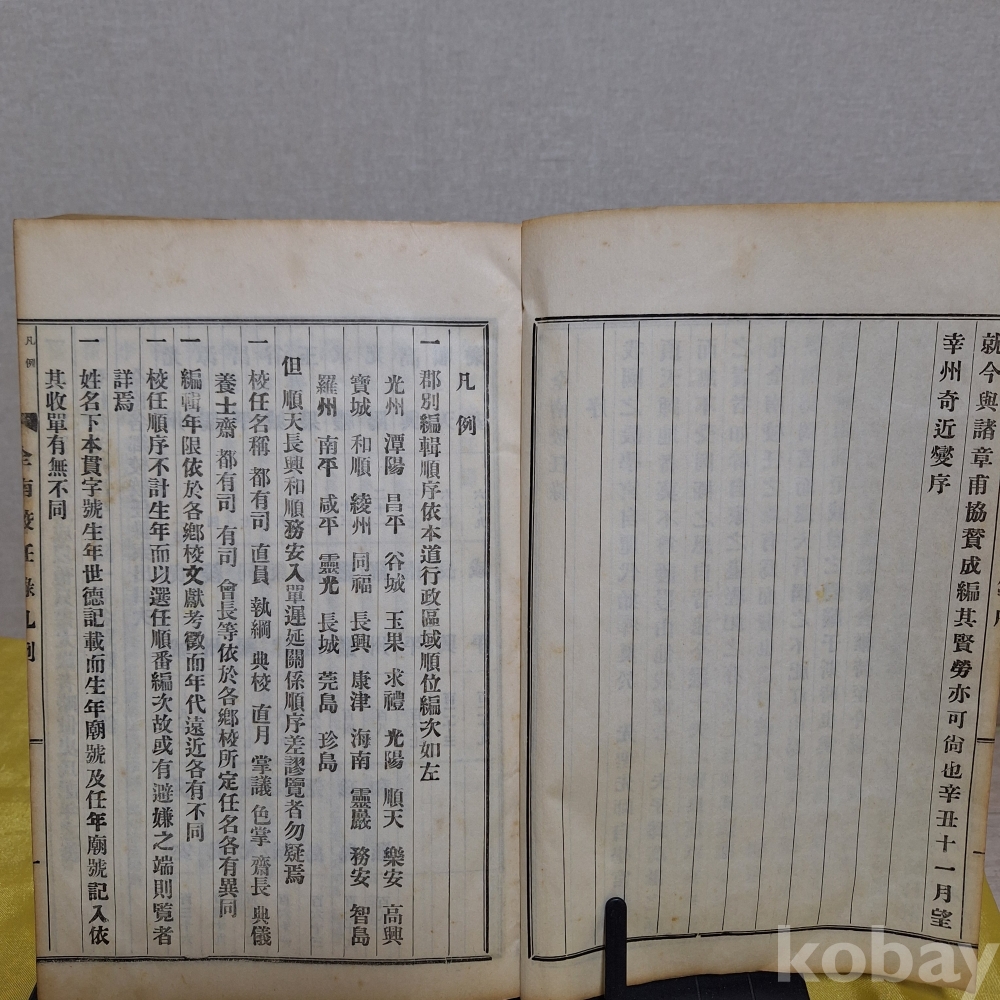 就今與諸章甫協贊成編其賢勞亦可尙也辛丑十一月望
幸州奇近燮序
凡例
一 郡別編輯順序依本道行政區域順位編次如左
光州 潭陽 昌平 谷城 玉果 求禮 光陽 順天 樂安 高興
寶城 和順 綾州 同福 長興 康津 海南 靈巖 務安 智島
羅州 南平 咸平 靈光 長城 莞島 珍島
但 順天長興和順務安入單遲延關係順序差謬覽者勿疑焉
一 校任名稱 都有司 直員 執綱 典校 直月 掌議 色掌 齋長 典儀
養士齋 都有司 有司 會長等依於各鄕校所定任名各有異同
一 編輯年限依於各鄕校文獻考徵而年代遠近各有不同
一 校任順序不計生年而以選任順番編次故或有避嫌之端則覽者
詳焉
一 姓名下本貫字號生年世德記載而生年廟號及任年廟號記入依
其收單有無不同
凡例
全南校任錄凡例
一
kobay